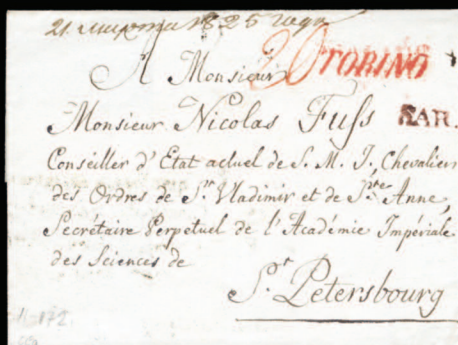 21 1825 года
20 TORINO
A Monsieur
Monsieur Nicolas Fuſs
SAR.
Conseiller d'Etat actuel de S. M. I. Chevalier
des Ordres de St. Vladimir et de Ste. Anne,
Secrétaire Perpetuel de l'Académie Impériale
des Sciences de
St. Petersbourg